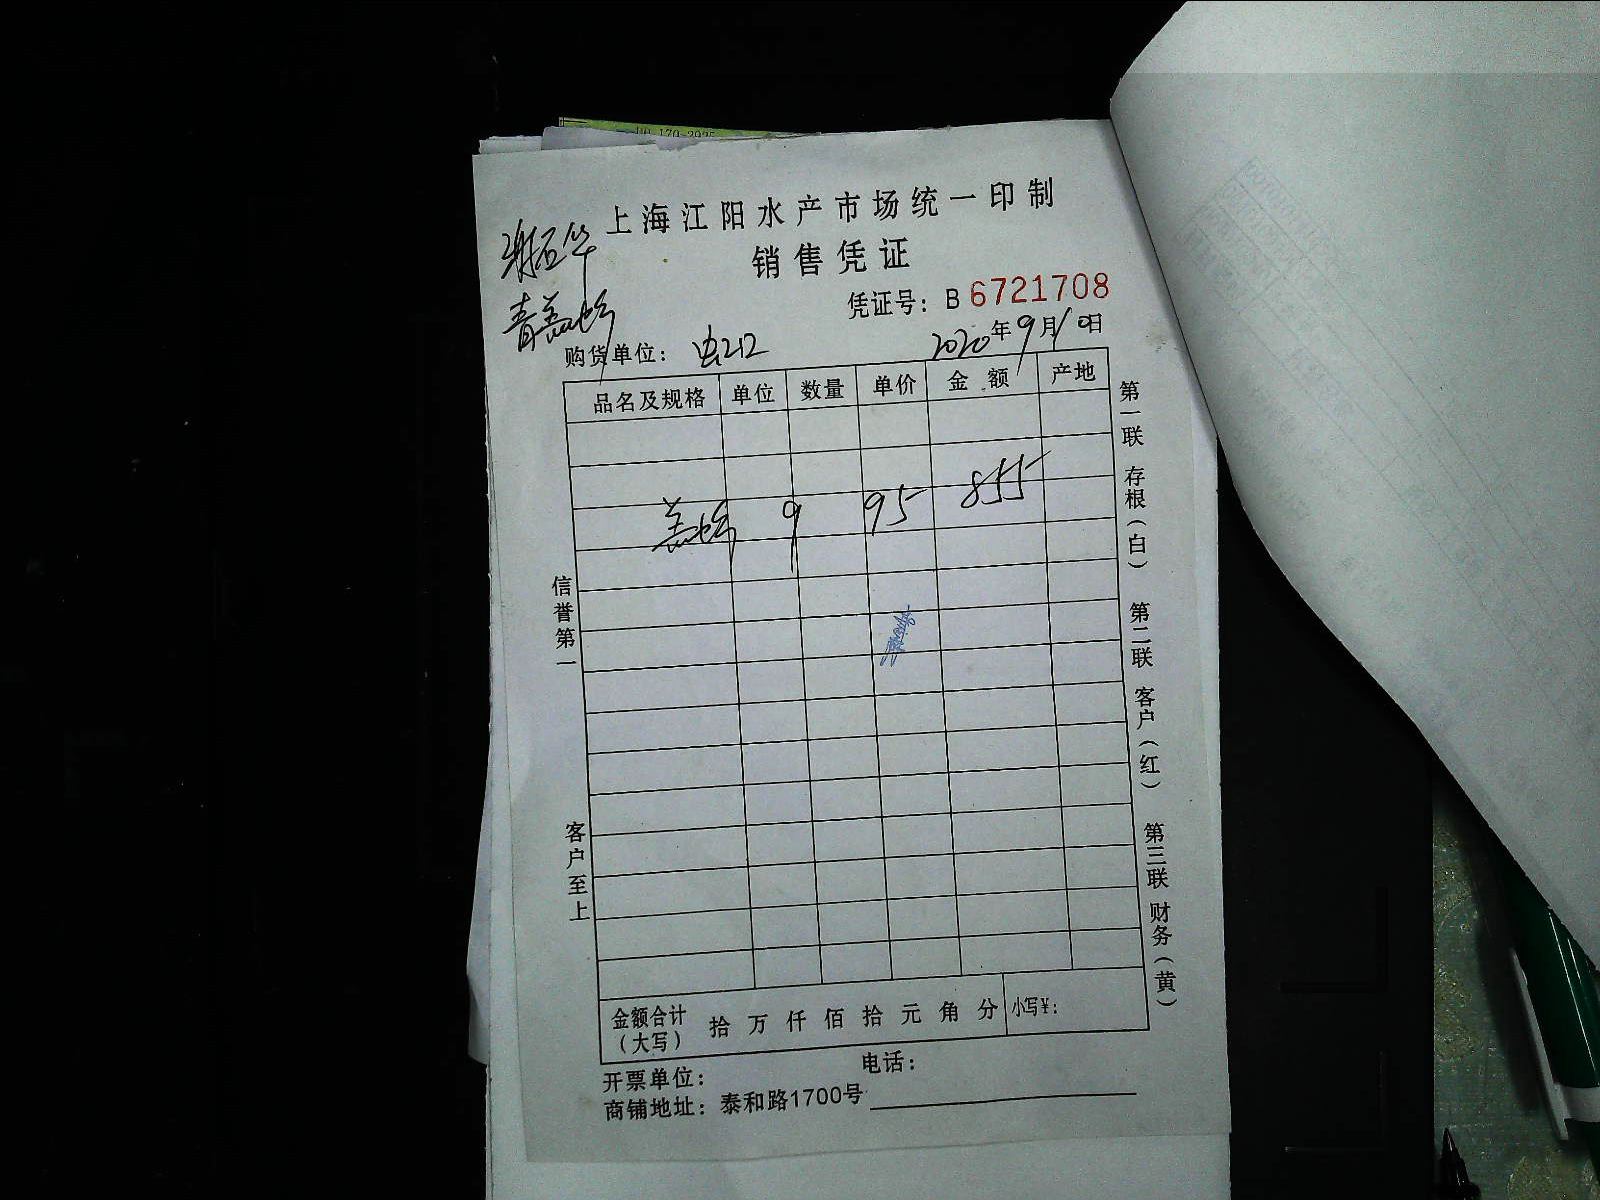 上海江阳水产市场统一印制
销售凭证
凭证号：B 6721708
购货单位： 虫212
2020年9月10日
品名及规格 单位 数量 单价 金 额 产地
9 95 855
信誉第一
客户至上
第一联 存根（白） 第二联 客户（红） 第三联 财务（黄）
金额合计（大写） 拾 万 仟 佰 拾 元 角 分 小写¥：
开票单位： 电话：
商铺地址：泰和路1700号